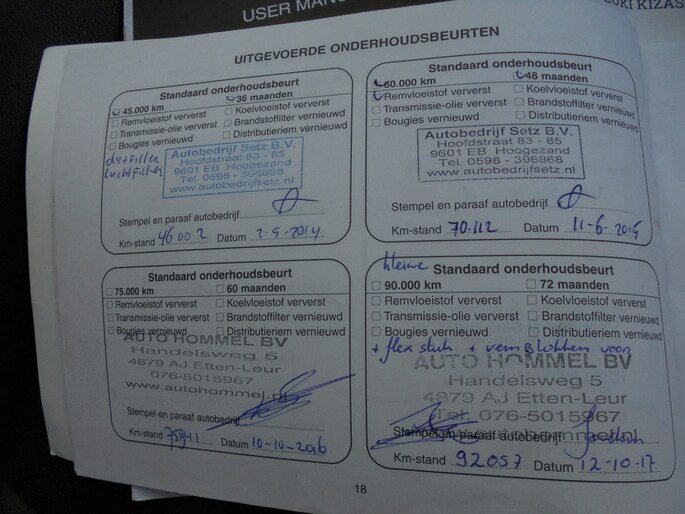 USER MAN
UKI KIZAS
UITGEVOERDE ONDERHOUDSBEURTEN
Standaard onderhoudsbeurt
45.000 km 36 maanden
Remvloeistof ververst Koelvloeistof ververst
Transmissie-olie ververst Brandstoffilter vernieuwd
Bougies vernieuwd Distributieriem vernieuwd
luchtfilter
Autobedrijf Setz B.V.
Hoofdstraat 83 - 85
9601 EB Hoogezand
Tel. 0598 - 396868
www.autobedrijfsetz.nl
Stempel en paraaf autobedrijf
Km-stand 46002 Datum 2-5-2014
Standaard onderhoudsbeurt
60.000 km 48 maanden
Remvloeistof ververst Koelvloeistof ververst
Transmissie-olie ververst Brandstoffilter vernieuwd
Bougies vernieuwd Distributieriem vernieuwd
Autobedrijf Setz B.V.
Hoofdstraat 83 - 85
9601 EB Hoogezand
Tel. 0598 - 396868
www.autobedrijfsetz.nl
Stempel en paraaf autobedrijf
Km-stand 70.112 Datum 11-6-2015
Standaard onderhoudsbeurt
75.000 km 60 maanden
Remvloeistof ververst Koelvloeistof ververst
Transmissie-olie ververst Brandstoffilter vernieuwd
Bougies vernieuwd Distributieriem vernieuwd
AUTO HOMMEL BV
Handelsweg 5
4879 AJ Etten-Leur
076-5015967
www.autohommel.nl
Stempel en paraaf autobedrijf
Km-stand Datum 10-10-2016
kleine
Standaard onderhoudsbeurt
90.000 km 72 maanden
Remvloeistof ververst Koelvloeistof ververst
Transmissie-olie ververst Brandstoffilter vernieuwd
Bougies vernieuwd Distributieriem vernieuwd
+ flexstuk + remblokken voor
AUTO HOMMEL BV
Handelsweg 5
4879 AJ Etten-Leur
Tel. 076-5015967
www.autohommel.nl
Stempel en paraaf autobedrijf
Km-stand 92057 Datum 12-10-17
18